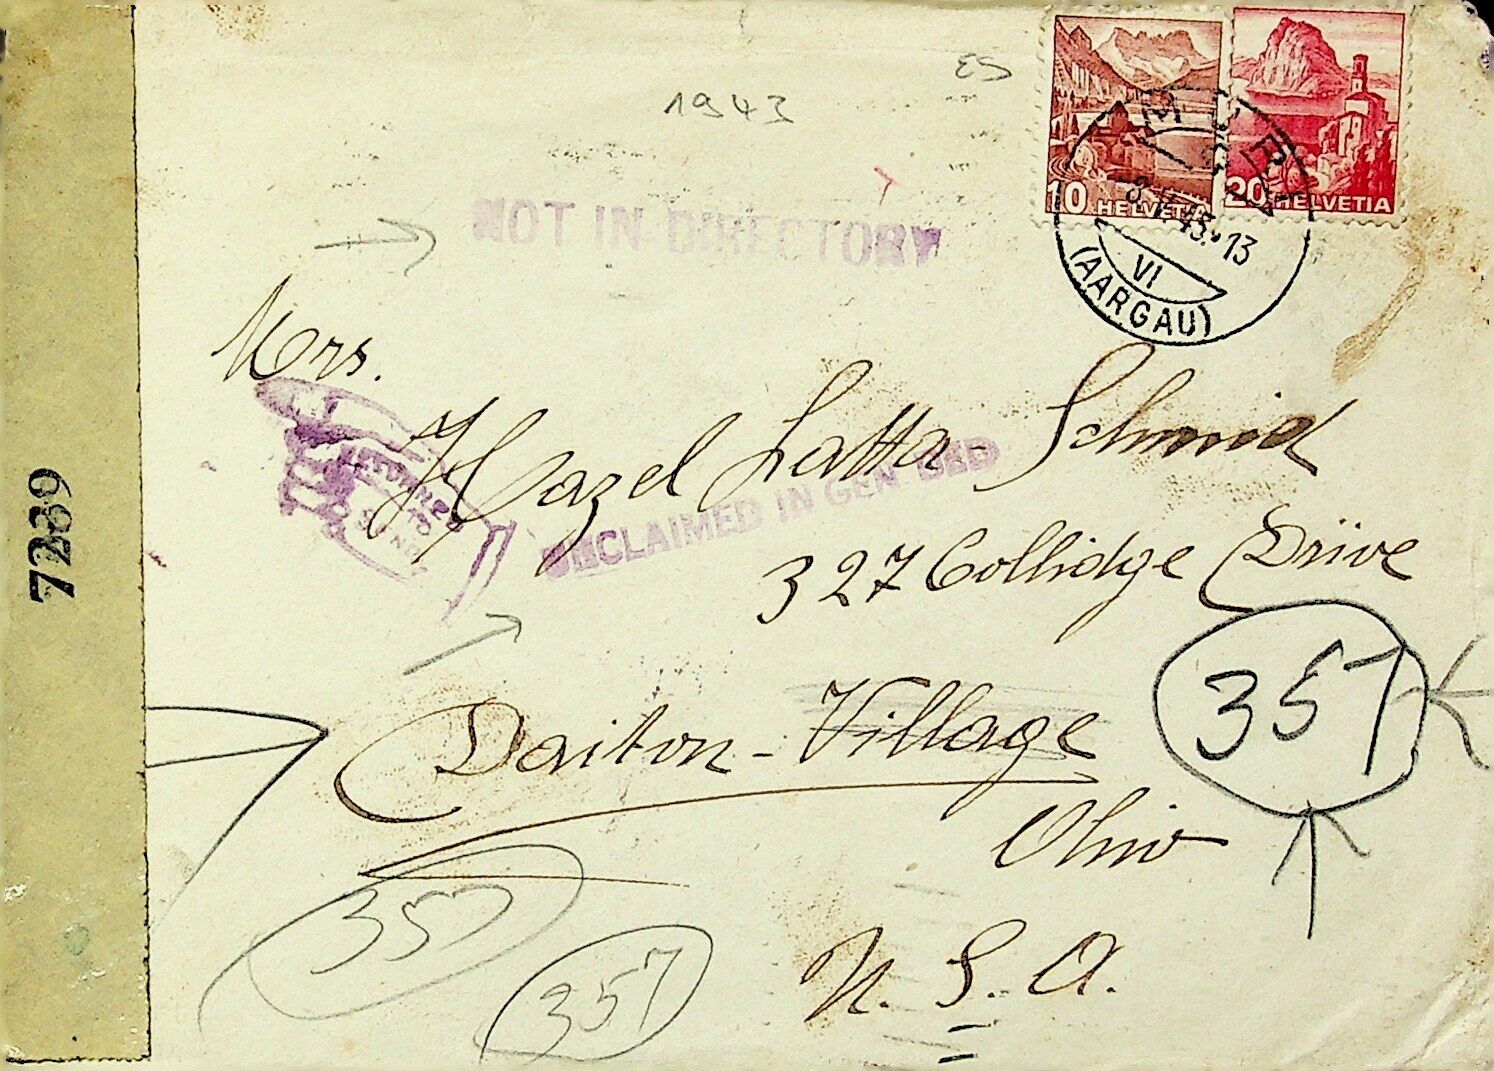 ES
1943
10 HELVETIA
20 HELVETIA
MURI
VI
(AARGAU)
NOT IN DIRECTORY
Mrs.
Hazel Latta Schmid
RETURNED
TO
UNCLAIMED IN GEN DED
327 Collidge Drive
7239
357
Daiton-Village
Ohio
357
357
U. S. A.